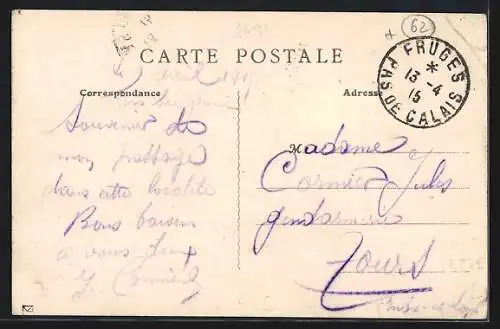 62
CARTE POSTALE
FRUGES
*
13-4
15
PAS DE CALAIS
Correspondance
Adresse
Souvenir de
mon passage
dans cette localité
Bons baisers
à vous deux
M
Madame
Cormier Jules
gendarmerie
Tours